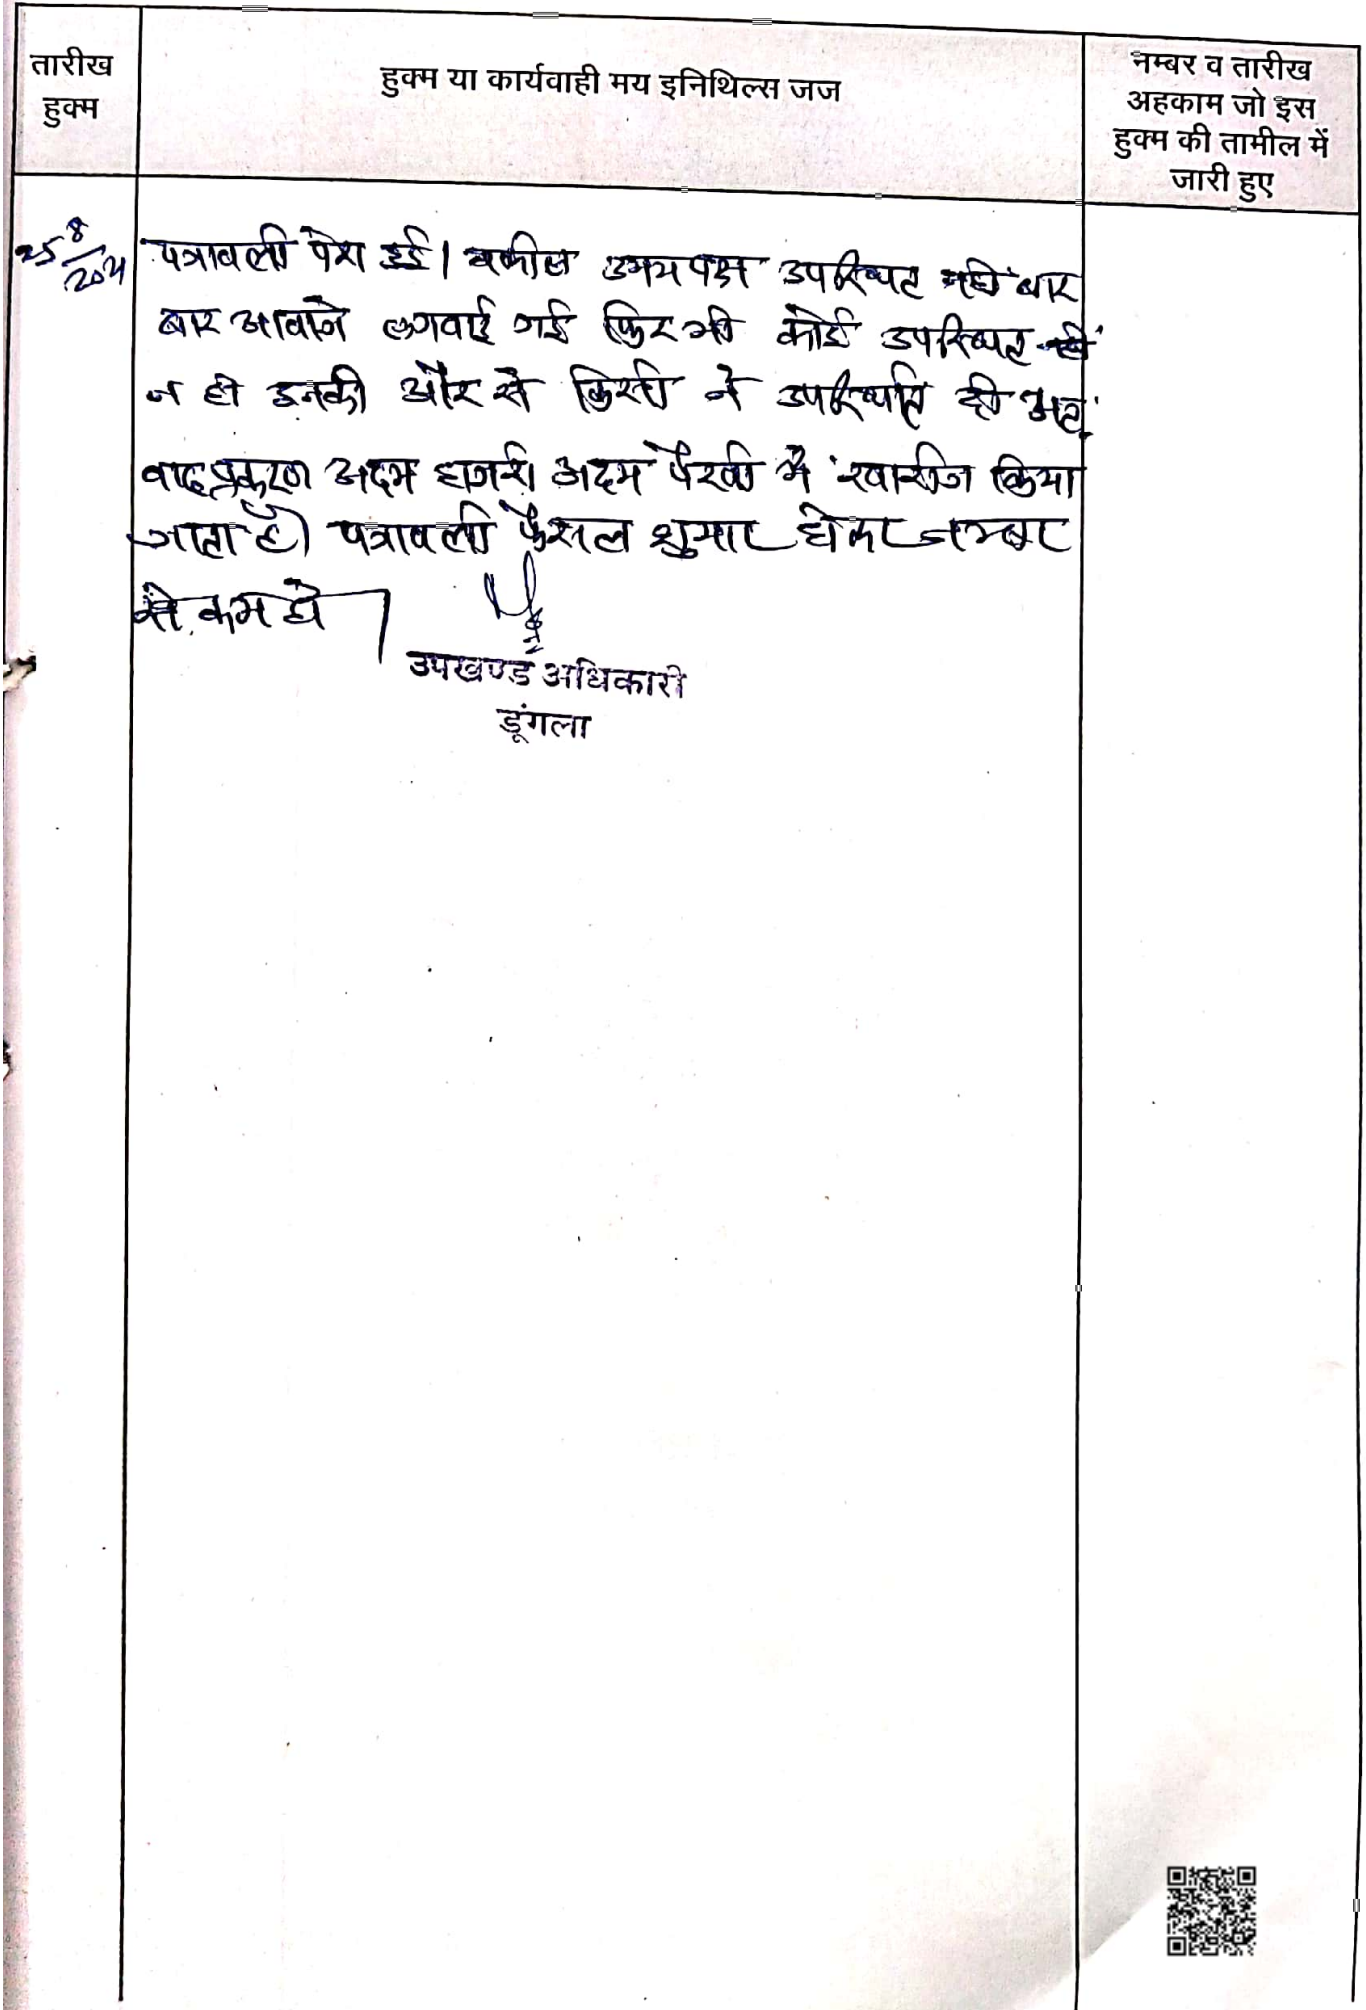 तारीख
हुक्म
हुक्म या कार्यवाही मय इनिथिल्स जज
नम्बर व तारीख
अहकाम जो इस
हुक्म की तामील में
जारी हुए
25/8
पत्रावली पेश हुई। वकील उभय पक्ष उपस्थित नही बार
बार आवाजे लगवाई गई फिर भी कोई उपस्थित नही
न ही इनकी और से किसी ने उपस्थिति दी अतः
वाद प्रकरण अदम हाजरी अदम पैरवी में खारीज किया
जाता है। पत्रावली फैसल शुमार होकर नम्बर
से कम हो
उपखण्ड अधिकारी
डूंगला